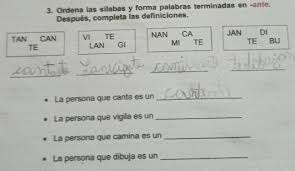 3. Ordena las sílabas y forma palabras terminadas en -ante.
Después, completa las definiciones.
TAN CAN
TE
VI TE
LAN GI
NAN CA
MI TE
JAN DI
TE BU
La persona que canta es un
La persona que vigila es un
La persona que camina es un
La persona que dibuja es un